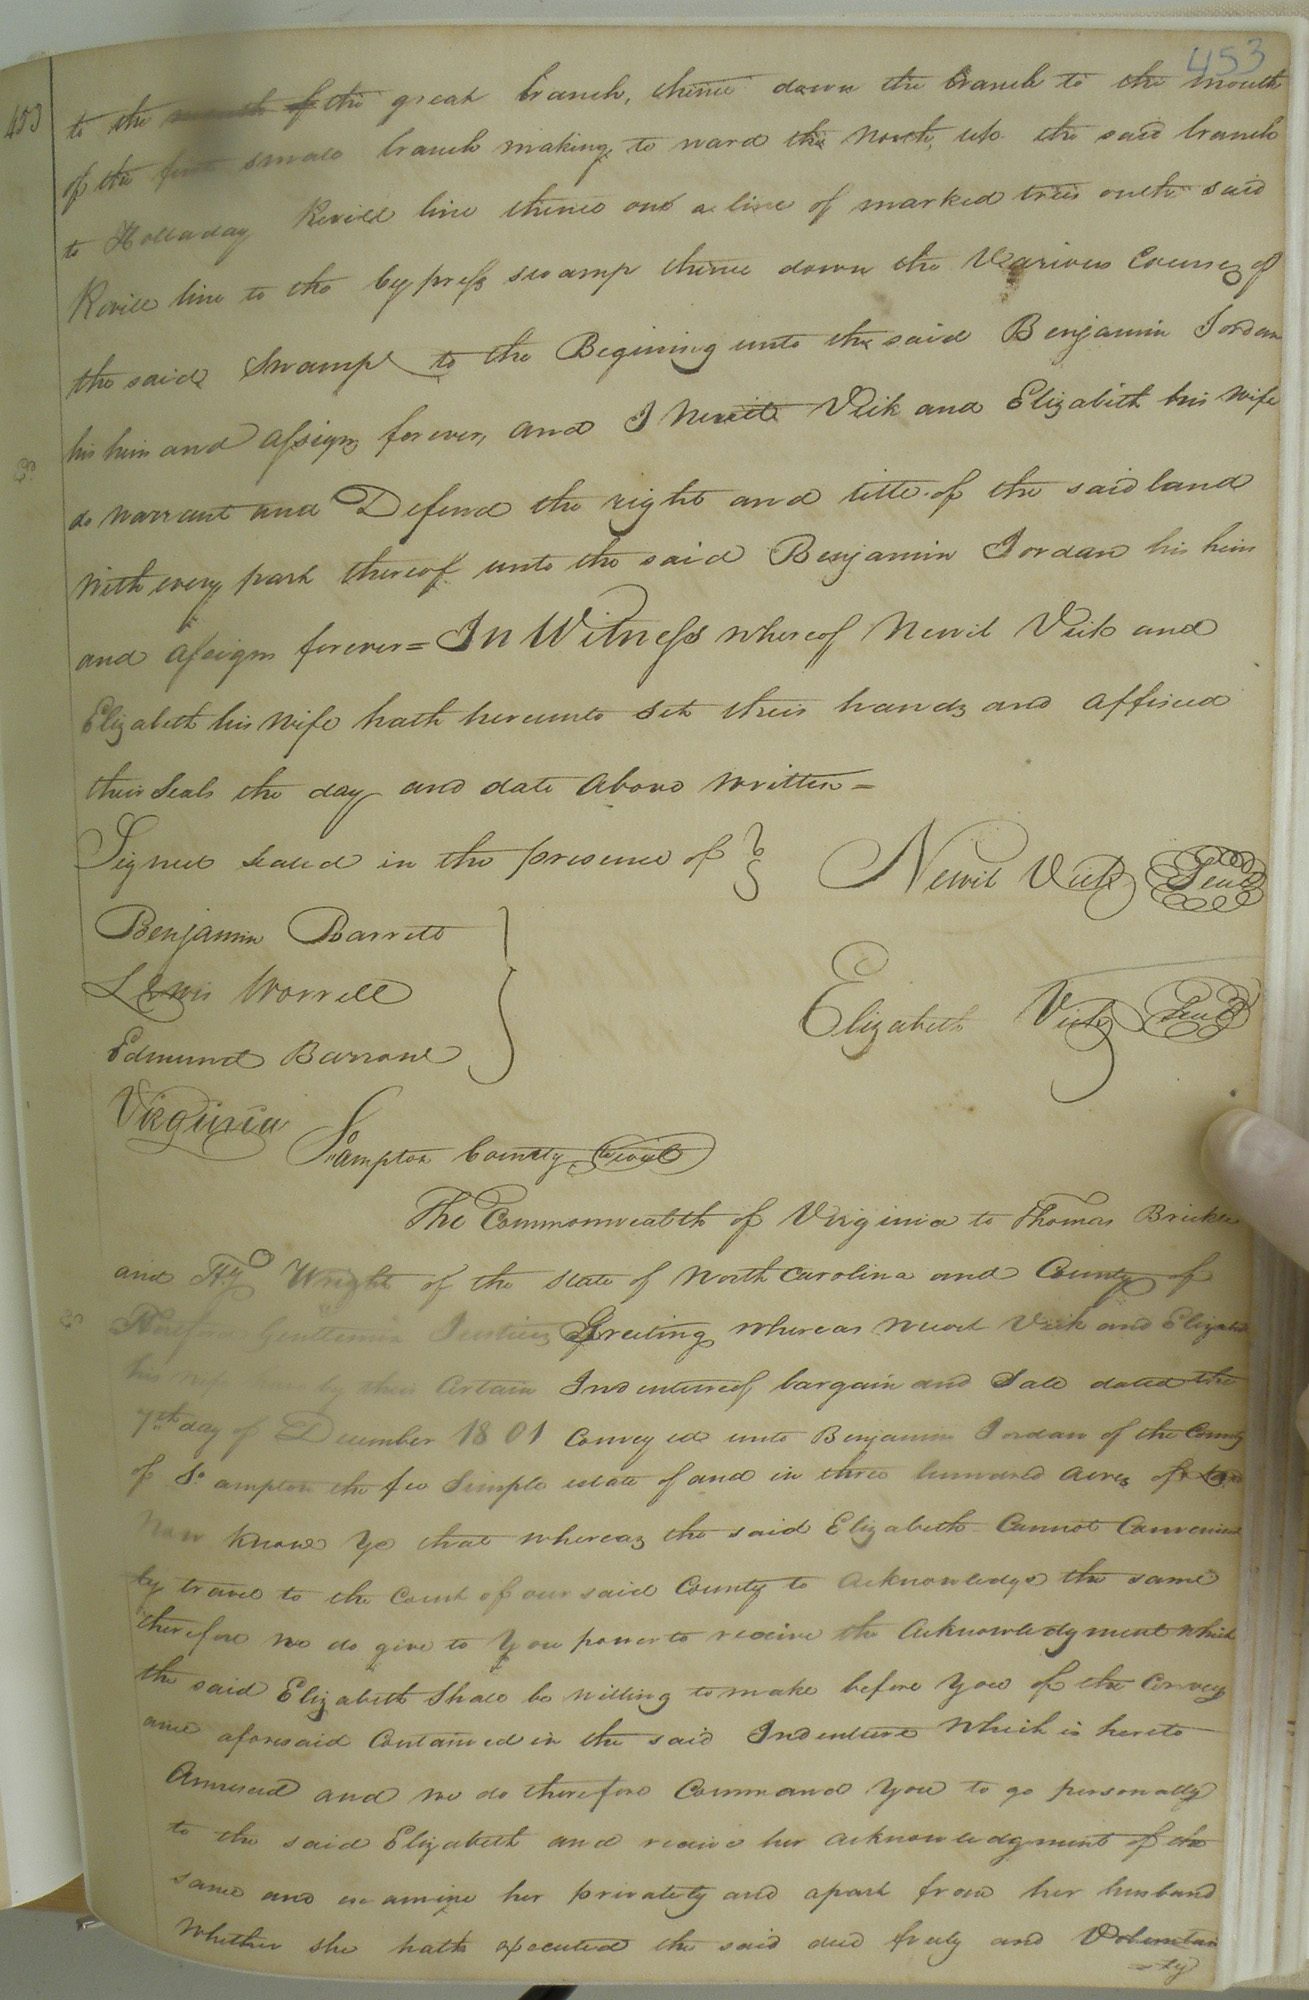 453
453
to the mouth of the great branch, thence down the branch to the mouth
of the first small branch making to ward the North, up the said branch
to Holladay Revill line thence on a line of marked trees on the said
Revill line to the Cypress swamp thence down the Various Courses of
the said Swamp to the Begining unto the said Benjamin Jordan
his heirs and assigns forever, and I Newit Vick and Elizabeth his wife
do warrant and Defend the right and title of the said land
with every part thereof unto the said Benjamin Jordan his heirs
and assigns forever = In Witness whereof Newit Vick and
Elizabeth his wife hath hereunto set their hands and affixed
their seals the day and date above written =
Signed sealed in the presence of
Newit Vick Seal
Benjamin Barrett
Lewis Worrell
Elizabeth Vick Seal
Edmund Barrow
Virginia
So ampton County to wit
The Commonwealth of Virginia to Thomas
and Wright of the State of North Carolina and County of
Gentlemen Justices Greeting whereas Newit Vick and Elizabeth
his wife have by their Certain Indenture of bargain and Sale dated the
7th day of December 1801 Conveyed unto Benjamin Jordan of the County
of So ampton the fee Simple estate of and in three hundred acres of land
Now Know Ye that whereas the said Elizabeth Cannot Convenient
ly travel to the Court of our said County to acknowledge the same
therefore we do give to You power to receive the acknowledgment which
the said Elizabeth Shall be willing to make before You of the Convey
ance aforesaid Contained in the said Indenture which is hereto
Annexed and we do therefore Command You to go personally
to the said Elizabeth and receive her acknowledgment of the
same and examine her privately and apart from her husband
whether she hath executed the said deed freely and Voluntari
ly